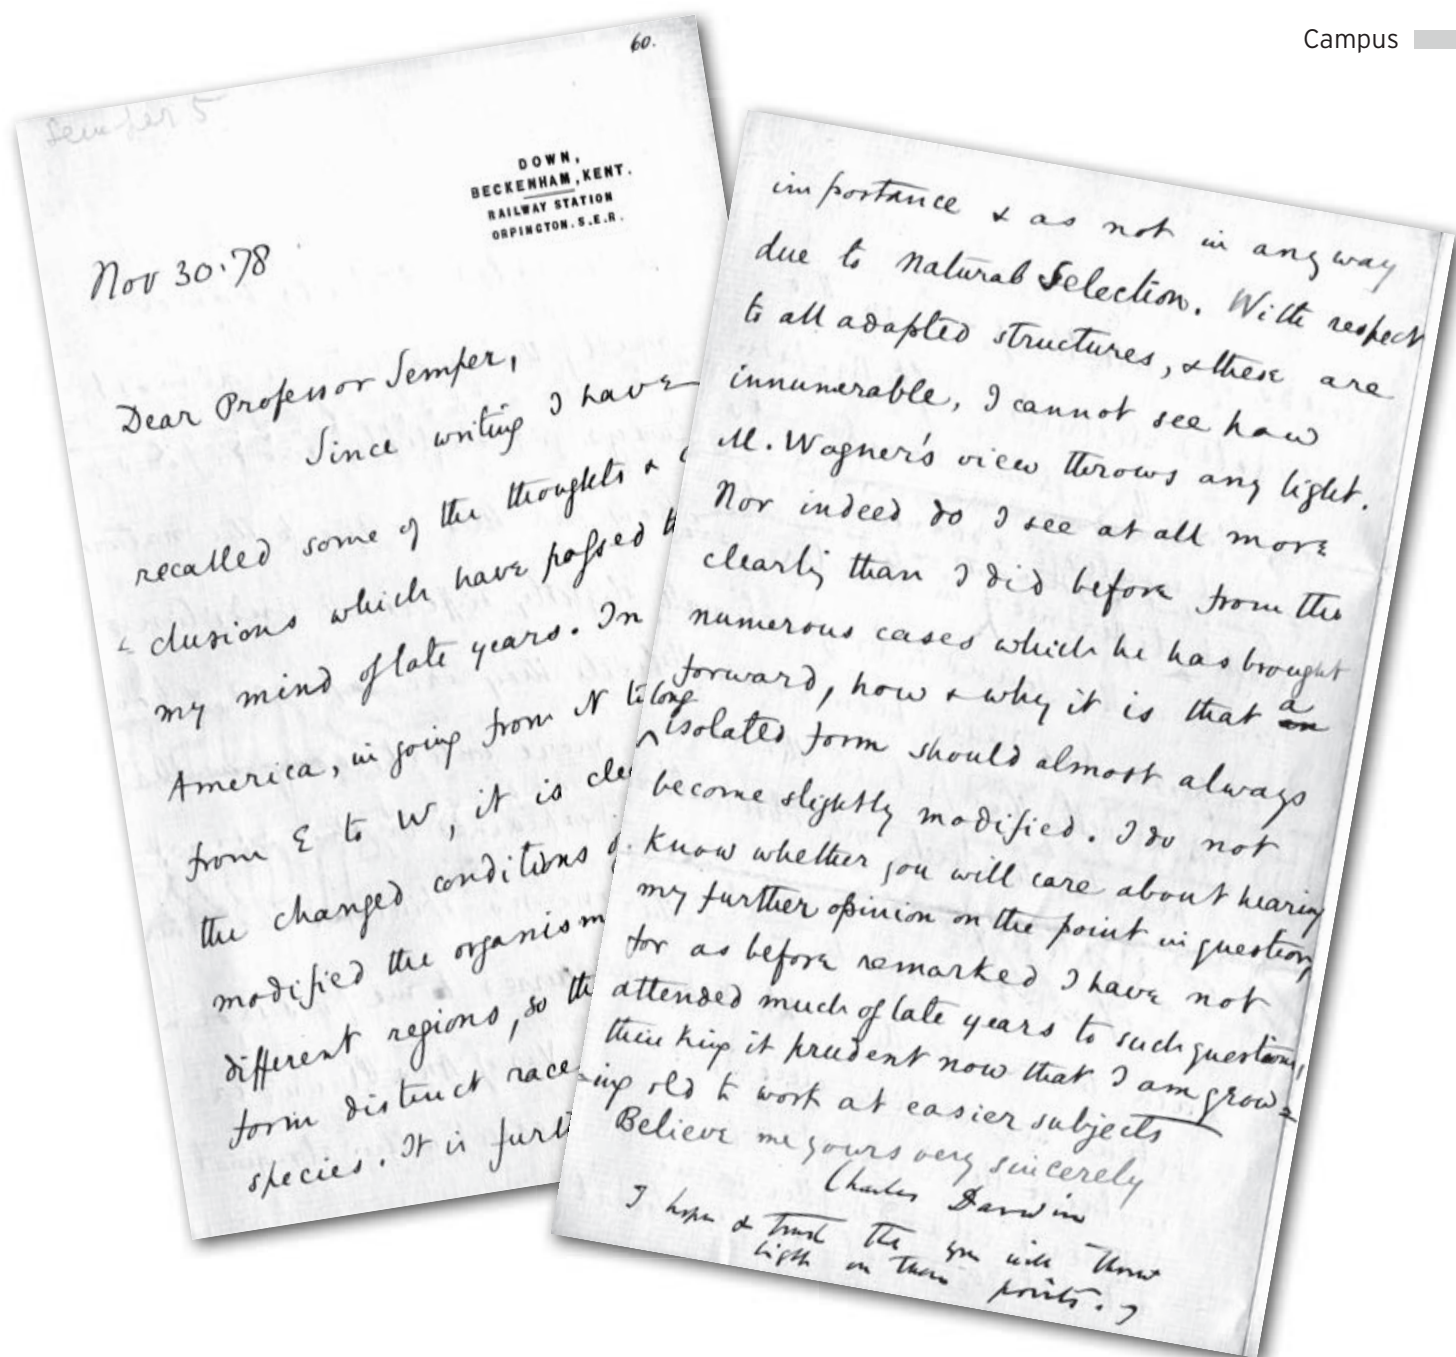 Campus
60.
Semper 5
DOWN,
BECKENHAM, KENT.
RAILWAY STATION
ORPINGTON. S.E.R.
Nov 30·78
Dear Professor Semper,
Since writing I have
recalled some of the thoughts &
clusions which have passed
my mind of late years. In
America, in going from N to
from E to W, it is
the changed conditions
modified the organism
different regions, so
form distinct
species. It is
importance & as not in any way
due to natural Selection. With respect
to all adapted structures, & these are
innumerable, I cannot see how
M. Wagner's view throws any light.
Nor indeed do I see at all more
clearly than I did before from the
numerous cases which he has brought
forward, how & why it is that a
long isolated form should almost always
become slightly modified. I do not
know whether you will care about hearing
my further opinion on the point in question,
for as before remarked I have not
attended much of late years to such questions,
thinking it prudent now that I am grow=
ing old to work at easier subjects
Believe me yours very sincerely
Charles Darwin
I hope & trust that you will throw
light on these points.